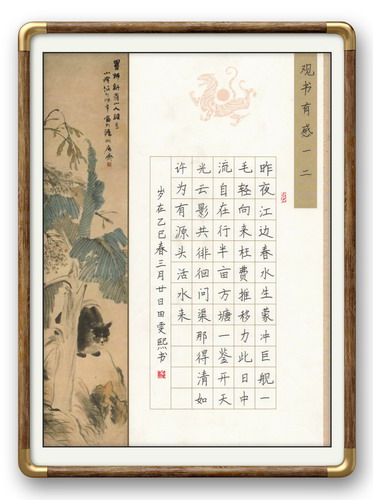 观书有感一二
昨夜江边春水生蒙冲巨舰一
毛轻向来枉费推移力此日中
流自在行半亩方塘一鉴开天
光云影共徘徊问渠那得清如
许为有源头活水来
岁在乙巳春三月廿日田雯熙书